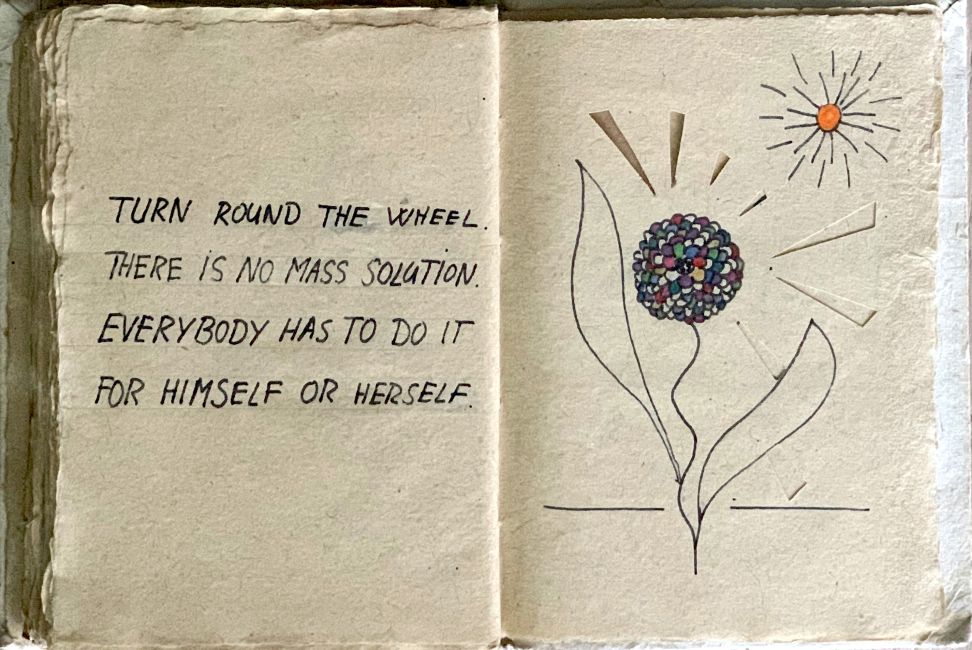 TURN ROUND THE WHEEL.
THERE IS NO MASS SOLUTION.
EVERYBODY HAS TO DO IT
FOR HIMSELF OR HERSELF.